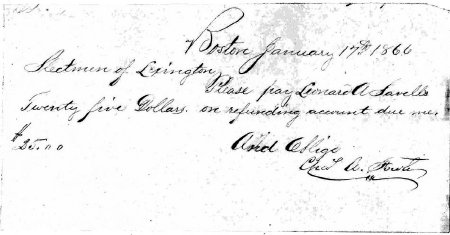 Boston January 17th 1866
Selectmen of Lexington
Please pay Leonard A Saville
Twenty five Dollars. on refunding account due me.
$25.00
And Oblige
Chas A. Fowle